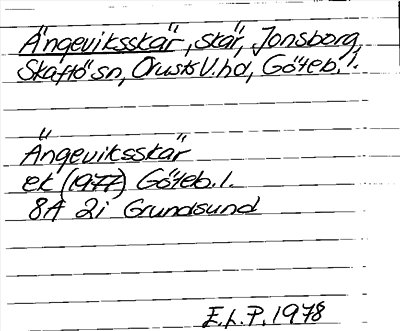 Ängeviksskär, skär, Jonsborg,
Skaftö sn, Orusts V. hd, Göteb. l.
Ängeviksskär
ek (1977) Göteb. l.
8A 2i Grundsund
E.L.P. 1978